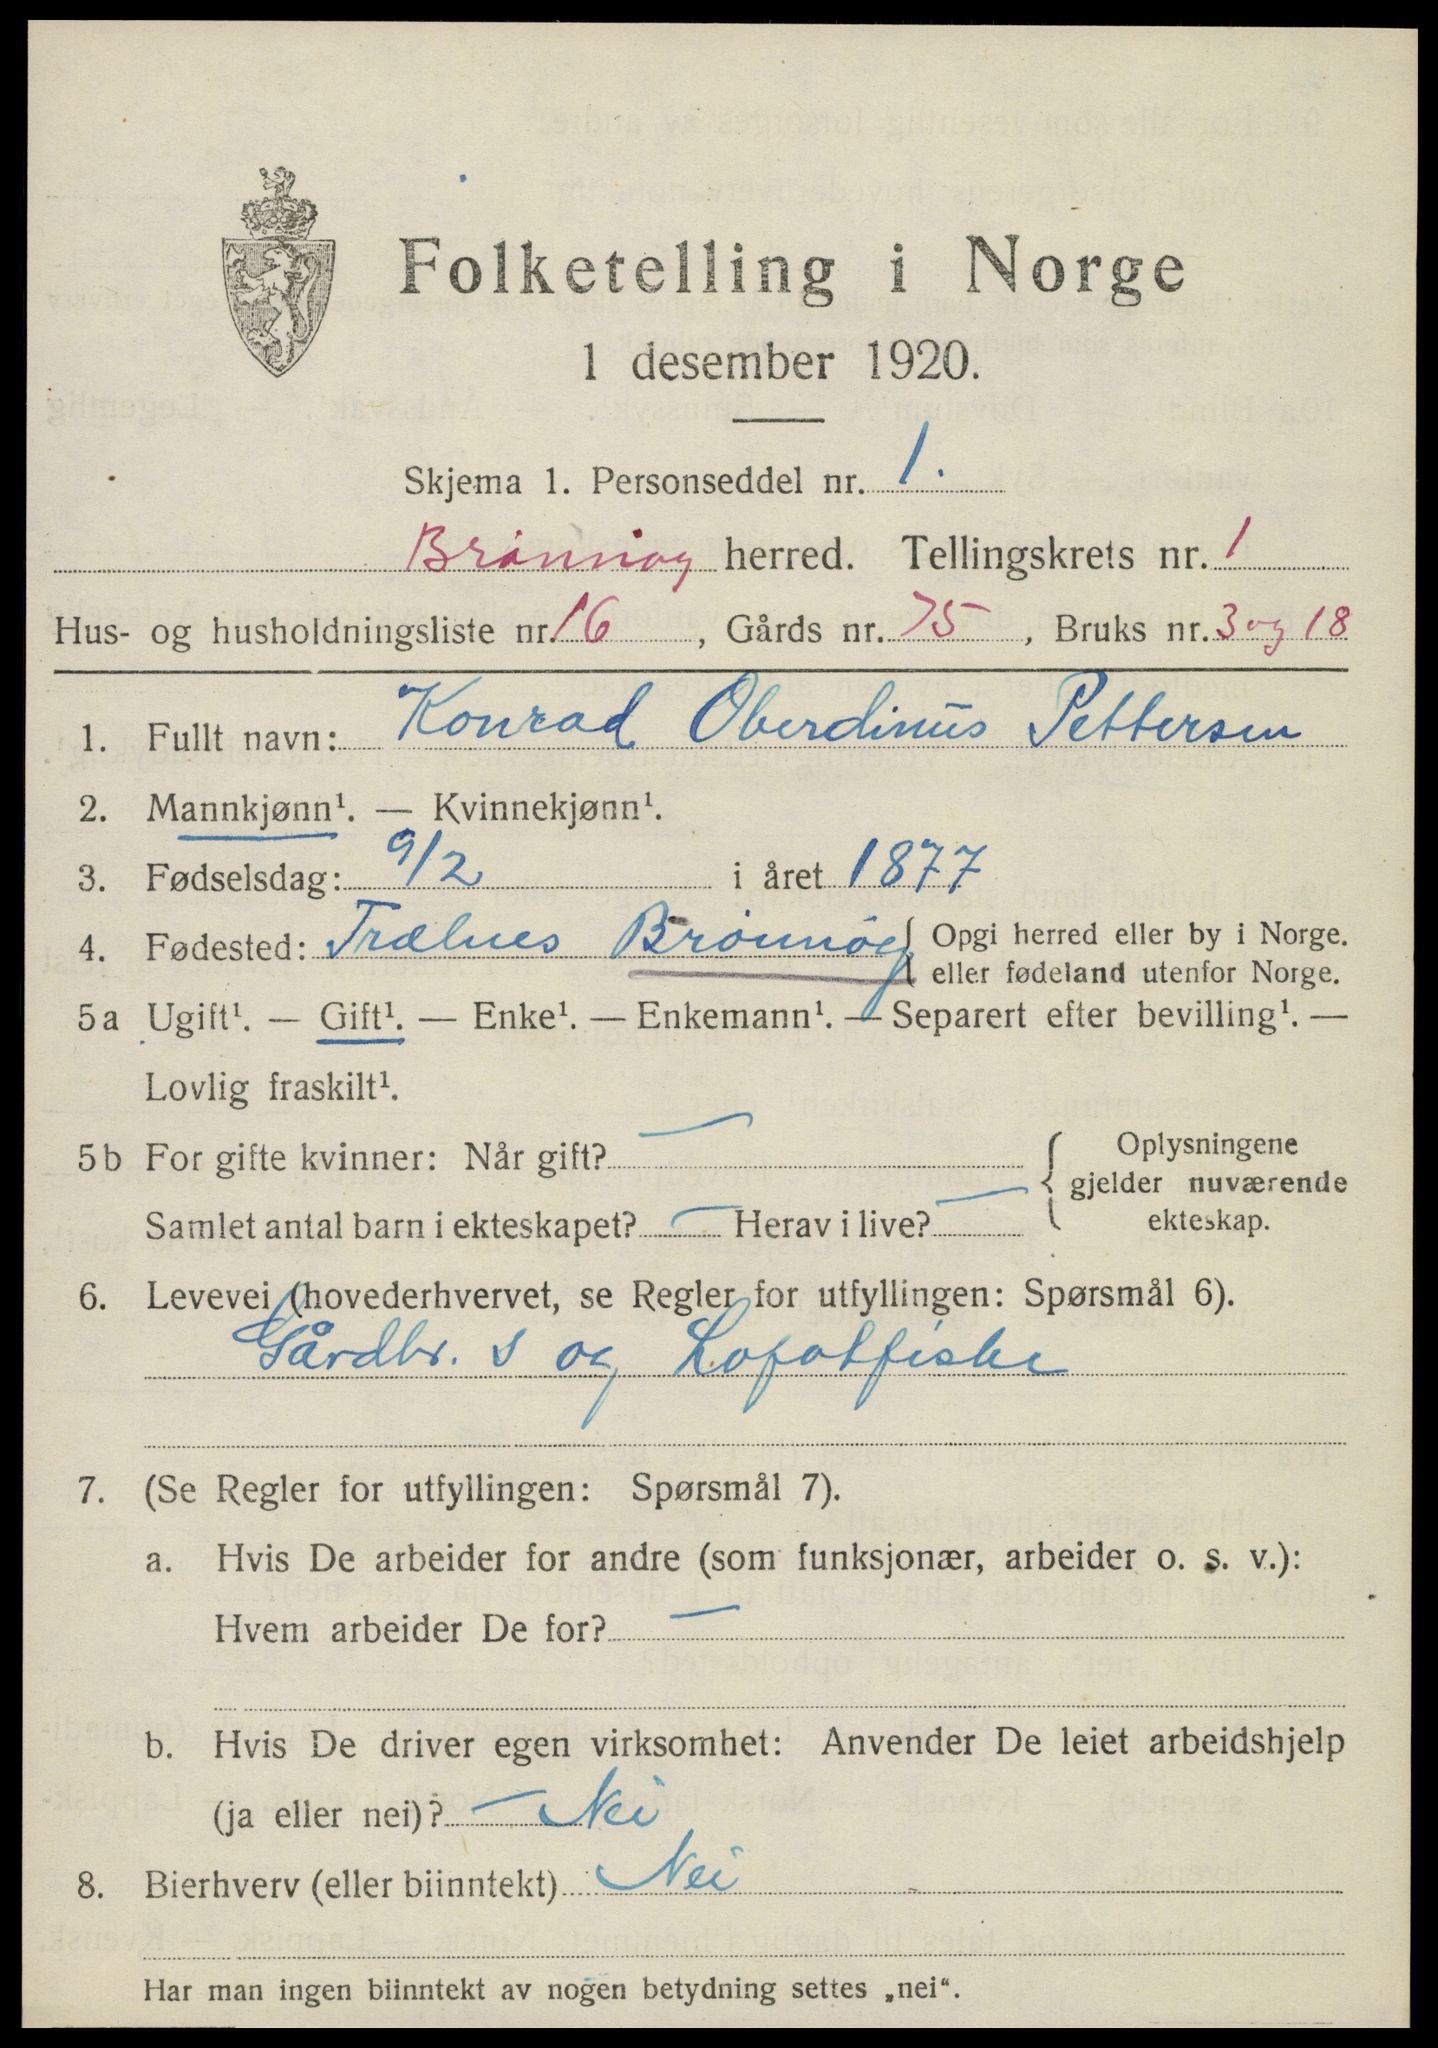 Folketelling i Norge
1 desember 1920.
Skjema 1. Personseddel nr. 1.
Brønnøy herred. Tellingskrets nr. 1
Hus- og husholdningsliste nr. 16, Gårds nr. 75, Bruks nr. 3 og 18
1. Fullt navn: Konrad Oberdinus Pettersen
2. Mannkjønn¹. — Kvinnekjønn¹.
3. Fødselsdag: 9/2 i året 1877
4. Fødested: Trælnes Brønnøy { Opgi herred eller by i Norge.
eller fødeland utenfor Norge.
5a Ugift¹. — Gift¹. — Enke¹. — Enkemann¹. — Separert efter bevilling¹. —
Lovlig fraskilt¹.
5b For gifte kvinner: Når gift? — { Oplysningene
gjelder nuværende
Samlet antal barn i ekteskapet? — Herav i live? — ekteskap.
6. Levevei (hovederhvervet, se Regler for utfyllingen: Spørsmål 6).
Gårdbr. S og Lofotfiske
7. (Se Regler for utfyllingen: Spørsmål 7).
a. Hvis De arbeider for andre (som funksjonær, arbeider o. s. v.):
Hvem arbeider De for? —
b. Hvis De driver egen virksomhet: Anvender De leiet arbeidshjelp
(ja eller nei)? — Nei
8. Bierhverv (eller biinntekt) Nei
Har man ingen biinntekt av nogen betydning settes „nei“.